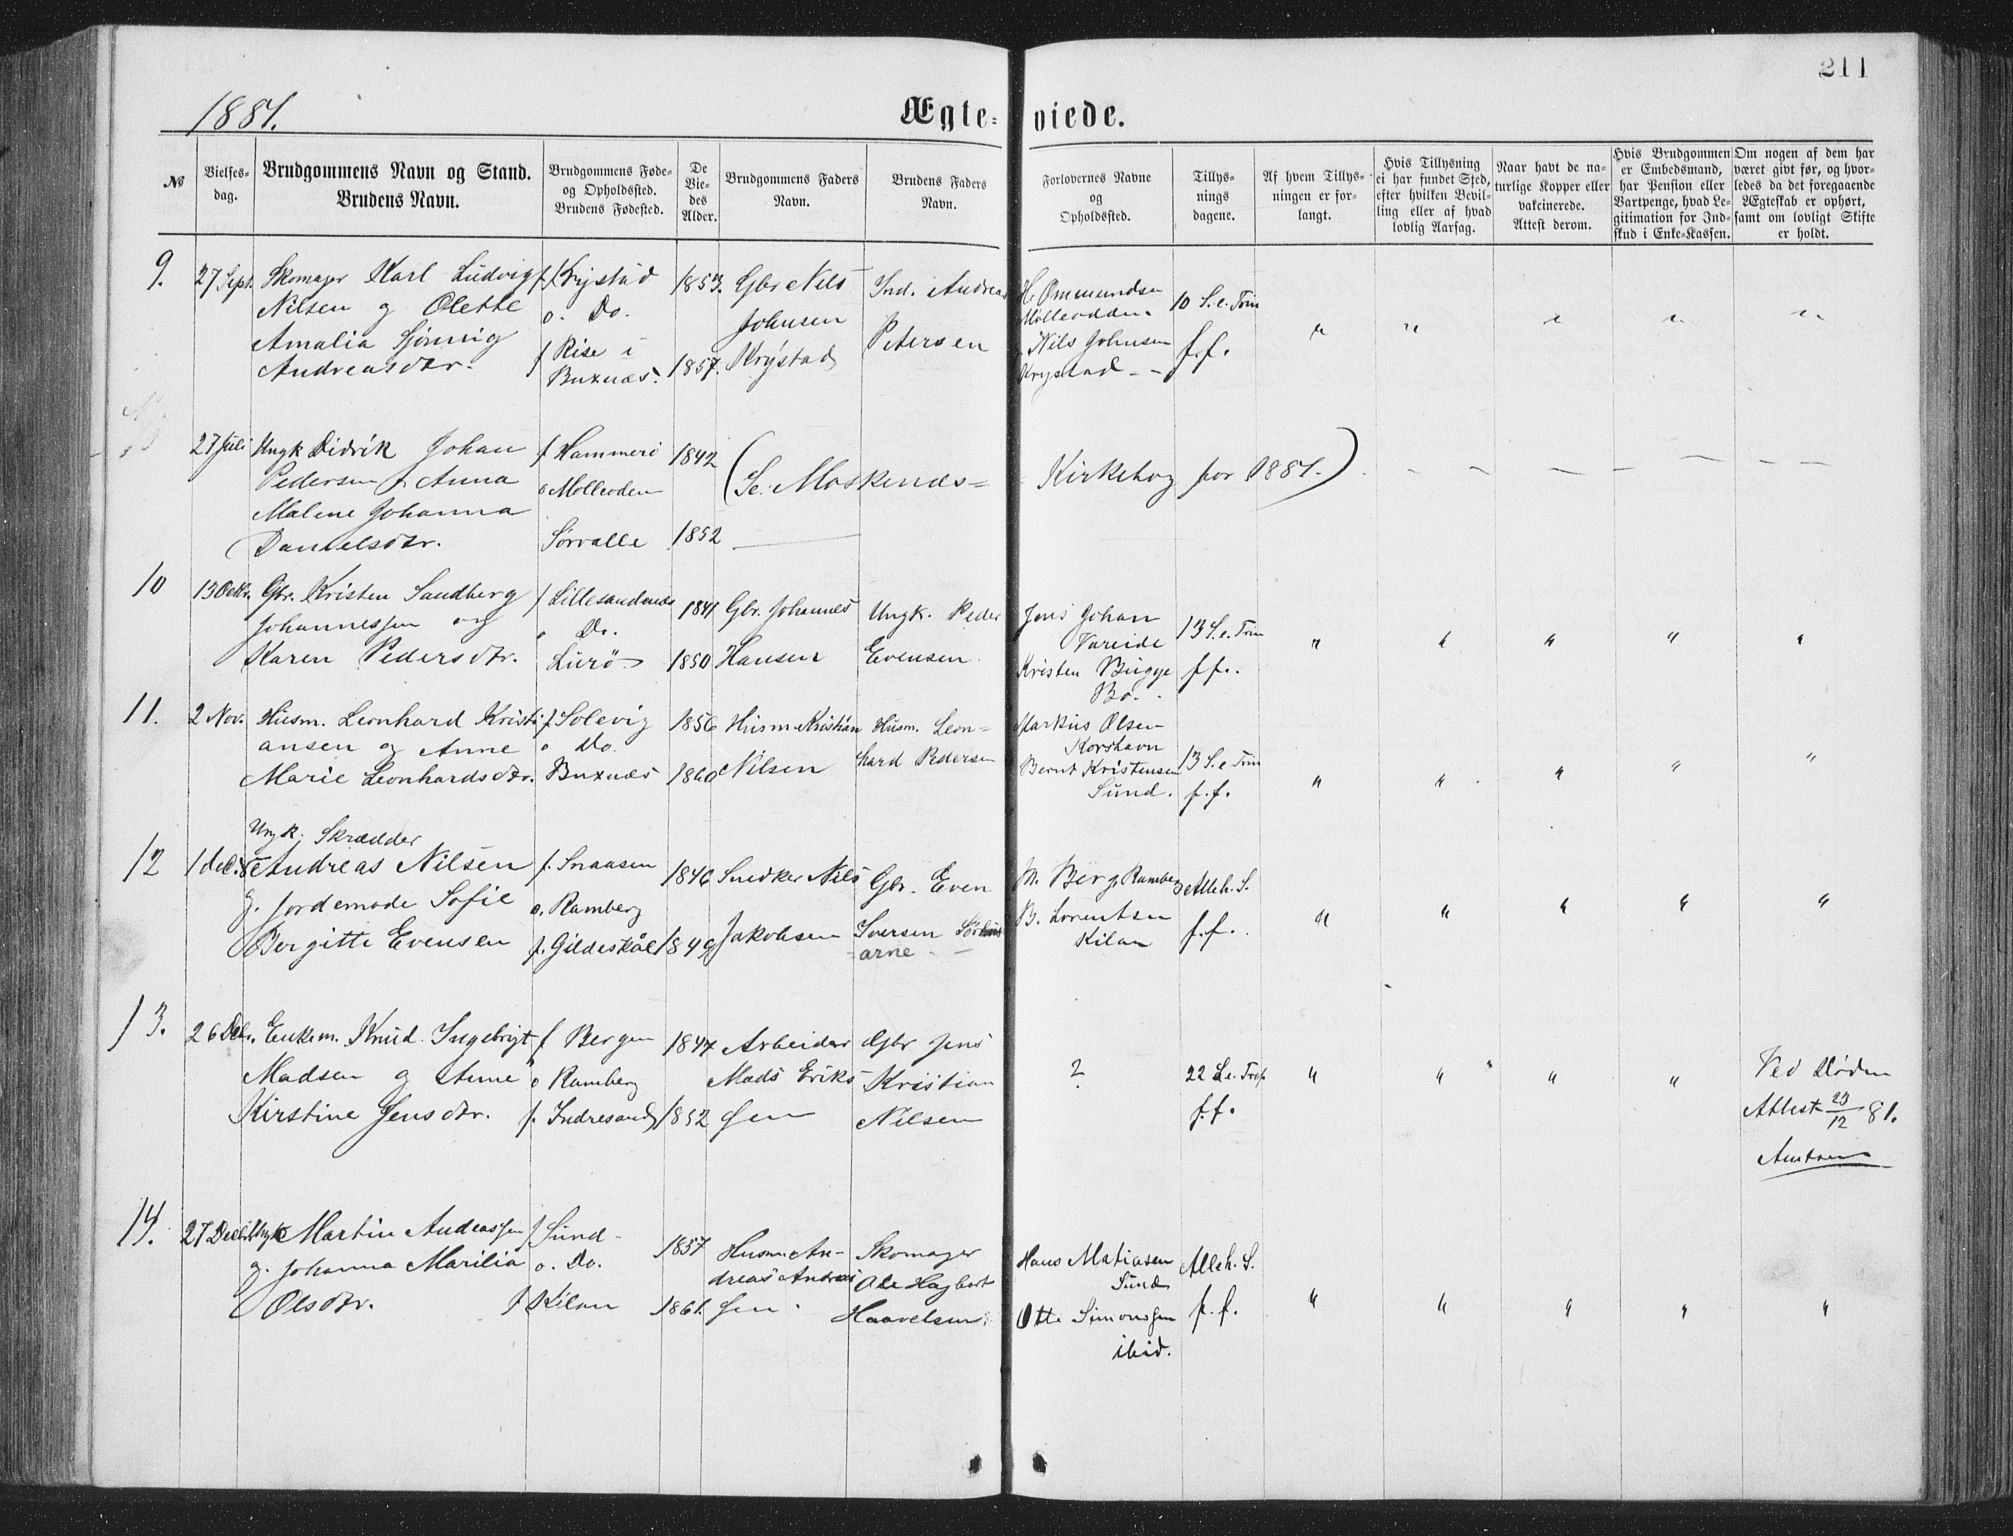 211
1881.
Ægte-viede.
№
Vielses-
dag.
Brudgommens Navn og Stand.
Brudens Navn.
Brudgommens Føde-
og Opholdssted.
Brudens Fødested.
De
Vie-
des
Alder.
Brudgommens Faders
Navn.
Brudens Faders
Navn.
Forlovernes Navne
og
Opholdssted.
Tillys-
nings
dagene.
Af hvem Tillys-
ningen er for-
langt.
Hvis Tillysning
ei har fundet Sted,
efter hvilken Bevil-
ling eller af hvad
lovlig Aarsag.
Naar havt de na-
turlige Kopper eller
vakcinerede.
Attest derom.
Hvis Brudgommen
er Embedsmand,
har Pension eller
Vartpenge, hvad Le-
gitimation for Ind-
skud i Enke-Kassen.
Om nogen af dem har
været givt før, og hvor-
ledes da det foregaaende
Ægteskab er ophørt,
samt om lovligt Skifte
er holdt.
9.
27 Sept.
Skomager Karl Ludvig
Nilsen og Olette
Amalia Hjönnig
Andreasdtr.
f Krystad
o. Do.
f Rise i
Buxnæs.
1853.
1857.
Gbr Nils
Johnsen
Krystad
Ind. Andreas
Petersen
H. Ommundsen
Mölleodden
Nils Johnsen
Krystad - -
10 S. e. Trin
f. f.
" " " " "
27 Juli
Ungk Didrik Johan
Pedersen & Anna
Malene Johanna
Danielsdtr.
f Hammerö
o Molleoden
Sörvalle
1842
1852
(Se: Moskenæs= Kirkebog for 1881.)
10
13 Octbr.
Gbr. Kristen Sandberg
Johannessen og
Karen Pedersdtr.
f Lillesandnæs
o Do.
Lurö
1841
1850
Gbr. Johannes
Hansen
Ungk. Peder
Evensen.
Jens Johan
Vareide
Kristen Bugge
Bo.
13 S. e. Trin
f f.
" " " " "
11.
2 Nov.
Husm. Leonhard Kristi
ansen og Anne
Marie Leonhardsdtr.
f. Solevig
o Do.
Buxnæs
1856
1860
Husm Kristian
Nilsen
Husm. Leon=
hard Pedersen
Markus Olsen
Korshavn
Bernt Kristensen
Sund.
13 S. e Trin
f. f.
" " " " "
12
1 Decbr
Ungk. Skrædder
Andreas Nilsen
g. Jordemode Sofie
Bergitte Evensen
f. Snaasen
o. Ramberg
f. Gildeskål
1846
1849
Snedker Nils
Jakobsen
Gbr. Even
Iversen
M. Berg, Ramberg
B. Lorentsen
Kilan
Alleh. S.
f. f.
" " " " "
13.
26 Dcbr.
Enkem. Knud. Ingebrigt
Madsen og Anne
Kirstine Jensdtr.
f Bergen
o Ramberg
f. Indresand
1847
1852
Arbeider
Mads Eriks
sen
Gbr Jens
Kristian
Nilsen
?
22 S. e. Trin
f. f.
" " " "
Ved Döden
Attest 23/12 81.
14.
27 Decbr
Ungk Martin Andreassen
g. Johanna Marilia
Olsdtr.
f Sund
o. Do.
f Kilan
1857
1861.
Husm. An-
dreas Andreas
sen
Skomager
Ole Hagbart
Haavelsen
Hans Matiasen
Sund
Otte Simonssen
ibid.
Alleh. S.
f. f.
" " " " "